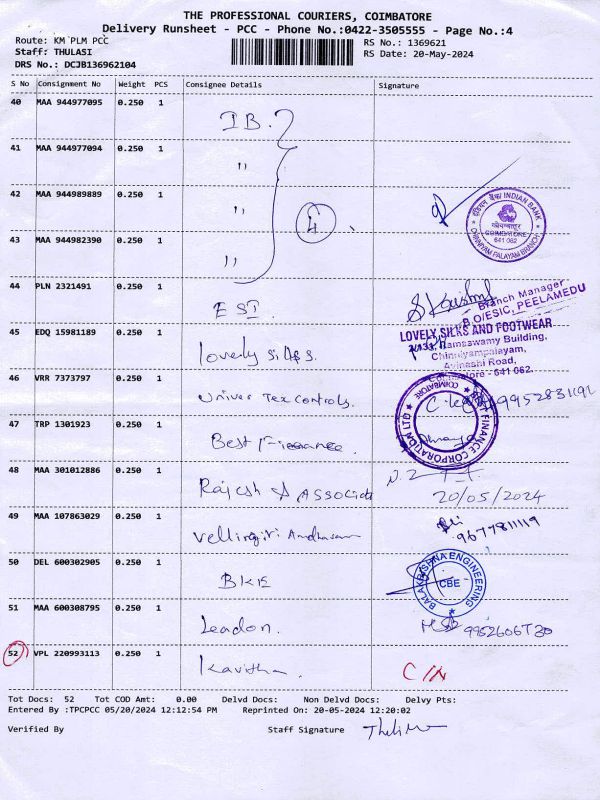 THE PROFESSIONAL COURIERS, COIMBATORE
Delivery Runsheet - PCC - Phone No.:0422-3505555 - Page No.:4
Route: KM PLM PCC
RS No.: 1369621
Staff: THULASI
RS Date: 20-May-2024
DRS No.: DCJB136962104
S No Consignment No Weight PCS Consignee Details Signature
40 MAA 944977095 0.250 1 I B.
41 MAA 944977094 0.250 1 "
42 MAA 944989889 0.250 1 "
4
इंडियन बैंक/ INDIAN BANK
कोयम्बतूर
COIMBATORE
641 062
CHINNIYAM PALAYAM BRANCH
43 MAA 944982390 0.250 1 "
44 PLN 2321491 0.250 1 E S I.
Branch Manager
B.O/ESIC, PEELAMEDU
45 EDQ 15981189 0.250 1 lovely silks.
LOVELY SILKS AND FOOTWEAR
2/133, Ramsawamy Building,
Chinniyampalayam,
Avinashi Road,
Coimbatore - 641 062.
46 VRR 7373797 0.250 1 Univer Tex controls.
47 TRP 1301923 0.250 1 Best Finance.
FINANCE CORPORATION LTD
COIMBATORE
48 MAA 301012886 0.250 1 Rajesh & Associa
20/05/2024
49 MAA 107863029 0.250 1 Vellingiri
9677811119
50 DEL 600302905 0.250 1 BKE
BALAKRISHNA ENGINEERING
CBE
51 MAA 600308795 0.250 1 Leadon.
52 VPL 220993113 0.250 1 Kavitha.
Tot Docs: 52 Tot COD Amt: 0.00 Delvd Docs: Non Delvd Docs: Delvy Pts:
Entered By :TPCPCC 05/20/2024 12:12:54 PM Reprinted On: 20-05-2024 12:20:02
Verified By Staff Signature